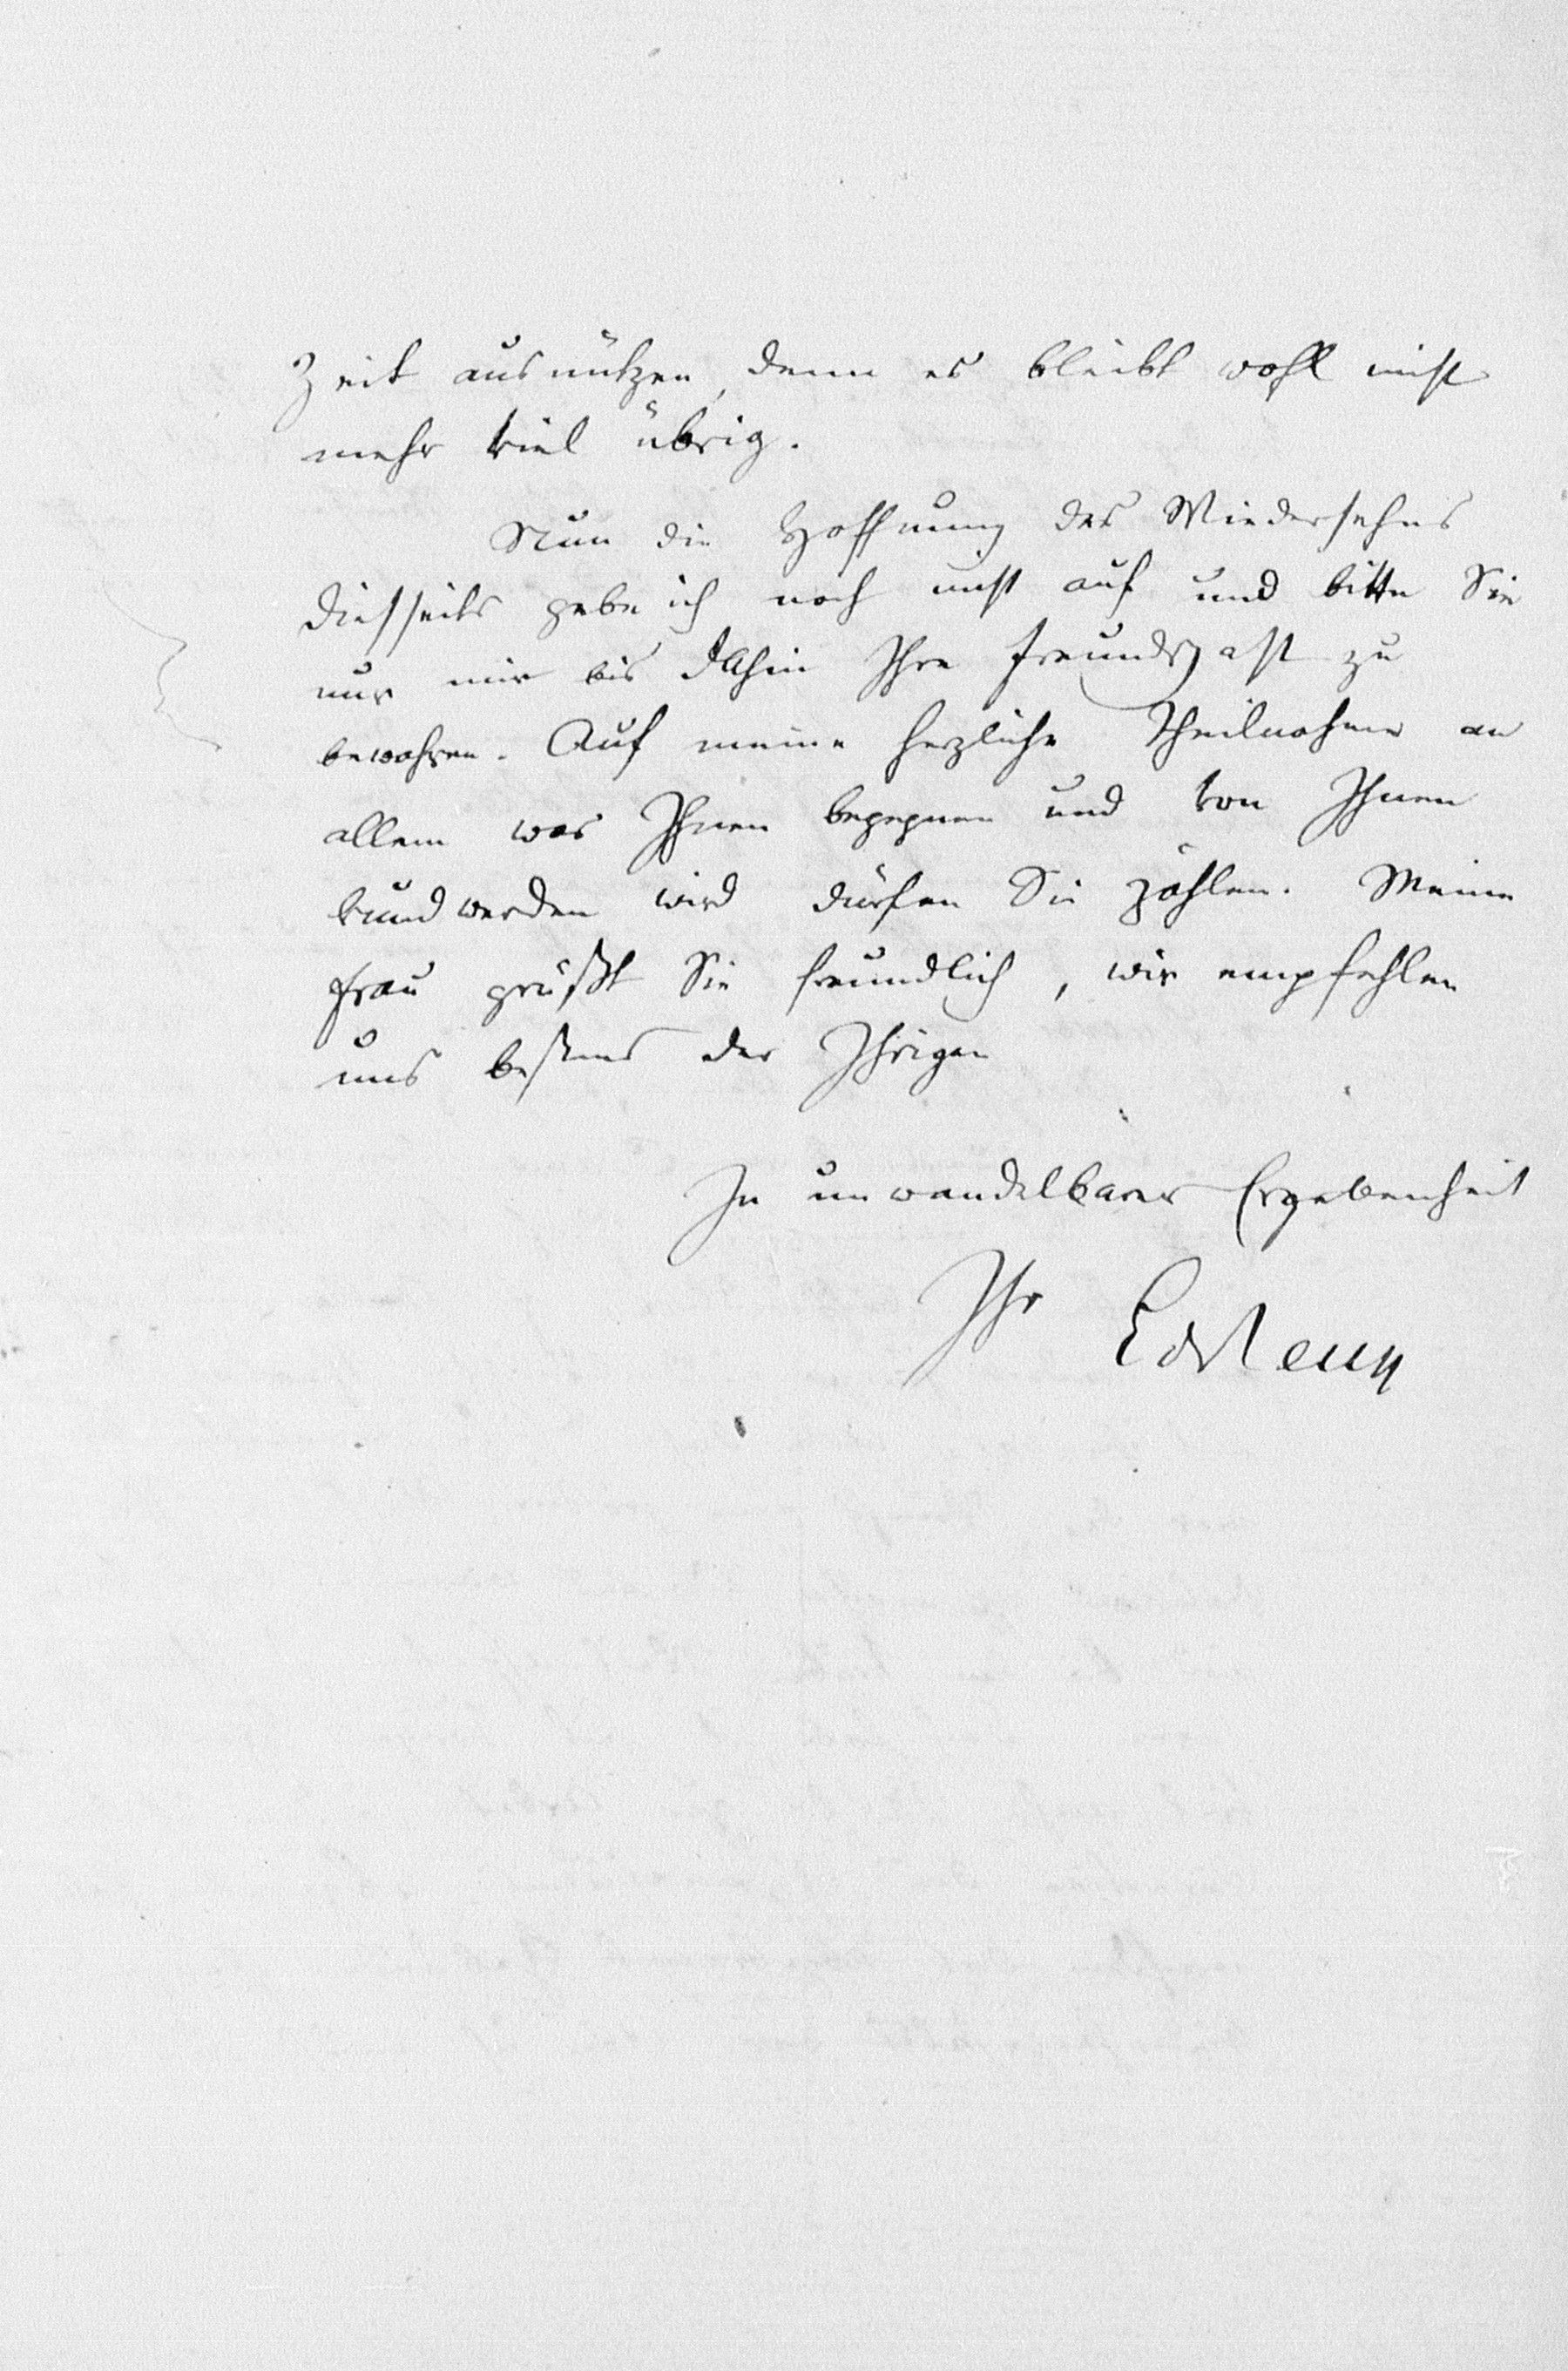 Zeit ausnützen, denn es bleibt wohl nicht
mehr viel übrig.
Nun die Hoffnung des Wiedersehns
diesseits gebe ich noch nicht auf und bitte Sie
nur mir bis dahin Ihre Freundschaft zu
bewahren. Auf meine herzliche Theilnahme an
allem was Ihnen begegnen und von Ihnen
kund werden wird dürfen Sie zählen. Meine
Frau grüßt Sie freundlich, wir empfehlen
uns bestens der Ihrigen
In unwandelbarer Ergebenheit
Ihr